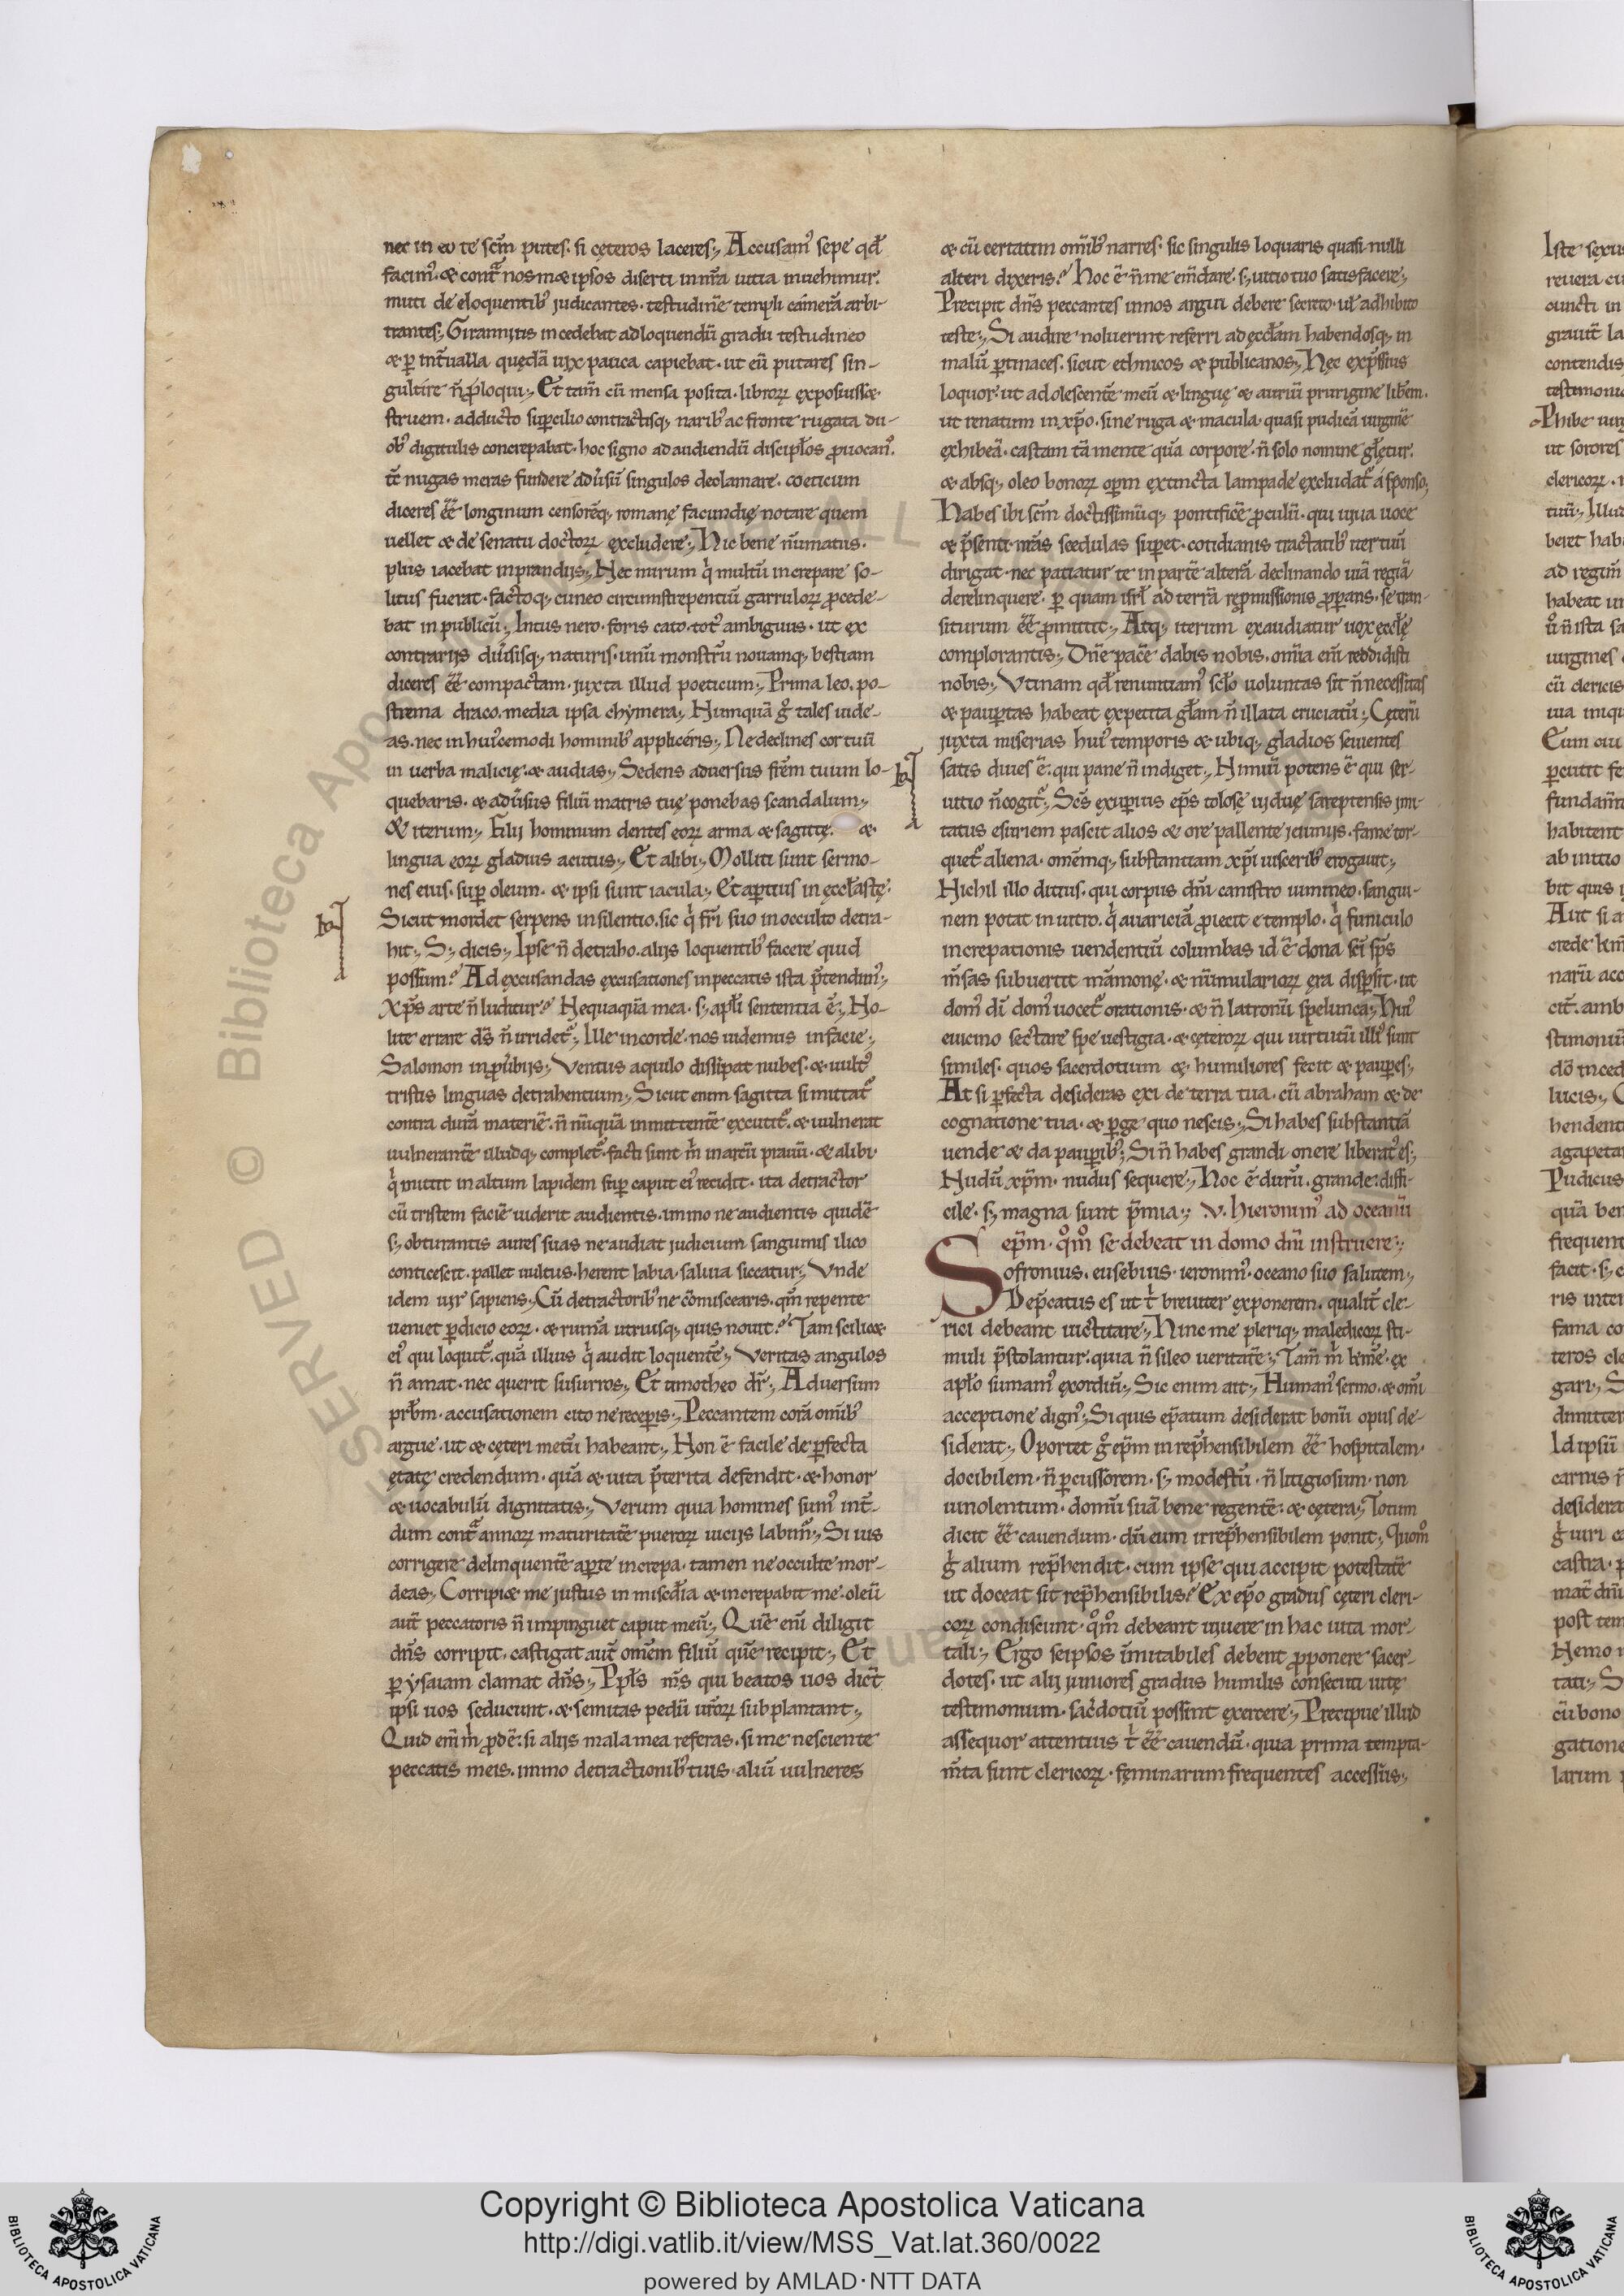 nec in eo te sc̄m putes. si cęteros laceres;, Accusam᾽ sepe qđ
facim᾽. & cont̄ nosm& ipsos diserti in nr̄a uitia inuehimur.
muti de eloquentib᾽ judicantes. testudinē templi camerā arbi-
trantes;, Girannius incedebat ad loquendū gradu testudineo
& p̄ int̄ualla quędā uix pauca capiebat. ut eū putares sin-
gultire n̄ ploqui;, Et tam̄ cū mensa posita. librorꝝ exposuiss&
struem. adducto sup̄cilio contractisq; narib᾽ ac fronte rugata du-
ob᾽ digitulis concrepabat. hoc signo ad audiendū discipłos puocan᾽.
tc̄ nugas meras fundere adúsū singulos declamare. coeticum
diceres ēē longinum censorēq; romanę facundię notare quem
uellet & de senatu doctorꝝ excludere;, Hic bene nūmatus.
plus iacebat in prandijs;, Nec mirum q̇ multū increpare so-
litus fuerat. factoq; cuneo circumstrepentiū garrulorꝝ pcede-
bat in publicū;, Intus nero. foris cato. tot᾽ ambiguus. ut ex
contrarijs diúsisq; naturis. unū monstrū nouamq; bestiam
diceres ēē compactam. juxta illud poeticum;, Prima leo. po-
strema draco. media ipsa chymera;, Numquā g᾽ tales uide-
as. nec in hui᾽cemodi hominib᾽ appliceris;, Ne declines cor tuū
in uerba malicię. & audias;, Sedens aduersus frēm tuum lo-
quebaris. & adúsus filiū matris tuę ponebas scandalum;,
& iterum;, Filij hominum dentes eorꝝ arma & sagittę. &
lingua eorꝝ gladius acutus;, Et alibi;, Molliti sunt sermo-
nes eius. sup̄ oleum. & ipsi sunt iacula;, Et ap̄tius in ęccłastę.
Sicut mordet serpens in silentio. sic q̇ fr̄i suo in occulto detra-
hit;, S; dicis;, Ipse n̄ detrabo. alijs loquentib᾽ facere quid
possum? Ad excusandas excusationes in peccatis ista p̄tendim᾽;,
Xp̄s arte n̄ luditur? Nequaquā mea. s; apłi sententia ē;, No-
lite errare dс̄ n̄ irridet᾽;, Ille in corde. nos uidemus in facie;,
Salomon in púbijs;, Ventus aquilo dissipat nubes. & uult᾽
tristis linguas detrahentium;, Sicut enim sagitta si mittat᾽
contra durā materiē. n̄ nūquā in mittentē excutit᾽. & uulnerat
uulnerantē illudq; complet᾽. facti sunt m̄ in arcū prauū. & alibi.
q̇ mittit in altum lapidem sup̄ caput ei᾽ recidit. ita detractor
cū tristem faciē uiderit audientis. immo ne audientis quidē
s; obturantis aures suas ne audiat judicium sanguinis ilico
conticescit. pallet uultus. herent labia. saliua siccatur;, Vnde
idem uir sapiens;, Cū detractorib᾽ ne cōmiscearis. qm̄ repente
ueniet p̄dicio eorꝝ. & ruinā utriusq; quis nouit? Tam scilic&
ei᾽ qui loquit᾽. quā illius q̇ audit loquentē;, Veritas angulos
n̄ amat. nec querit susurros;, Et timotheo dr̄;, Aduersum
prb̄m. accusationem cito ne recep̄is;, Peccantem corā omīb᾽
argue. ut & cęteri metū habeant;, Non ē facile de p̄fecta
ętatę credendum. quā & uita p̄terita defendit. & honor
& uocabulū dignitatis;, Verum quia homines sum᾽ int̄-
dum cont̄ annorꝝ maturitatē puerorꝝ uicijs labim᾽;, Si uis
corrigere delinquentē ap̄te increpa. tamen ne occulte mor-
deas;, Corripi& me justus in miscd̄ia & increpabit me. oleū
aut̄ peccatoris n̄ impinguet caput meū;, Quē enī diligit
dn̄s corripit. castigat aut̄ omēm filiū quē recipit;, Et
p̄ ysaiam clamat dn̄s;, Ppłs m̄s qui beatos uos dic̄t
ipsi uos seducunt. & semitas pedū ur̄orꝝ subplantant;,
Quid enī m̄ pdē. si alijs mala mea referas. si me nesciente
peccatis meis. immo detractionib᾽ tuis. aliū uulneres
& cū certatim omīb᾽ narres. sic singulis loquaris quasi nulli
alteri dixeris? Hoc ē n̄ me emēdare. s; uitio tuo satisfacere;,
Precipit dn̄s peccantes in nos argui debere secreto. uł adhibito
teste;, Si audire noluerint referri ad ęccłam habendosq; in
malū p̄tinaces. sicut ethnicos & publicanos;, Hęc exp̄ssius
loquor. ut adolescentē meū & linguę & auriū prurigine lib̄em.
ut renatum in xp̄o. sine ruga & macula. quasi pudicā uirginē
exhibeā. castam tā mente quā corpore. n̄ solo nomine głetur.
& absq; oleo bonorꝝ opm̄ extincta lampade excludat᾽ á sponso;
Habes ibi sc̄m doctissimūq; pontificē pculū. qui uiua uoce
& p̄senti. nr̄as scedulas sup̄et. cotidianis tractatib᾽ iter tuū
dirigat. nec patiatur te in partē alterā declinando uiā regiā
derelinquere. p̄ quam isrł ad terrā rep̄missionis pp̄ans. se tran-
siturum ēē pmittit;, Atq; iterum exaudiatur uox ęccłę
complorantis;, Dn̄e pacē dabis nobis. om̄ia em̄ reddidisti
nobis;, Vtinam qđ renuntiam᾽ scło uoluntas sit n̄ necessitas
& paup̄tas habeat expetita głam n̄ illata cruciatū;, Cęterū
juxta miserias hui᾽ temporis & ubiq; gladios seuientes
satis diues ē. qui pane n̄ indiget;, Nimiū potens ē qui ser-
uitio n̄ cogit᾽;, Sc̄s exup̄ius ep̄s tolosę uiduę sareptensis imi-
tatus esuriem pascit alios & ore pallente ieiunijs. fame tor-
quet᾽ aliena. omēmq; substantiam xp̄i uisceríb᾽ erogauit;,
Nichil illo ditius. qui corpus dn̄i canistro uimineo. sangui-
nem potat in uitro. q̇ auariciā piecit e templo. q̇ funiculo
increpationis uendentiū columbas id ē dona sc̄i sp̄s
m̄sas subuertit māmonę. & nūmulariorꝝ era disp̄sit. ut
dom᾽ di᾽ dom᾽ uocet᾽ orationis. & n̄ latronū spelunca;, Hui᾽
euicino sectare spe uestigia. & cęterorꝝ qui uirtutū illi᾽ sunt
similes. quos sacerdotium & humiliores fecit & paup̄es;,
At si p̄fecta desideras exi de terra tua. cū abraham & de
cognatione tua. & p̄ge quo nescis;, Si habes substantiā
uende & da paup̄ib᾽;, Si n̄ habes grandi onere liberat᾽ es;,
Nudū xp̄m. nudus sequere;, Hoc ē durū. grande. diffi-
cile. s; magna sunt p̄mia;, V. hieronim᾽ ad oceanū
ep̄m. qm̊ se debeat in domo dn̄i instruere;,
Sofronius. eusebius. ieronim᾽. oceano suo salutem;,
Dep̄catus es ut t̄ breuiter exponerem. qualit̄ cle-
rici debeant uictitare;, Hinc me pleriq; maledicorꝝ sti-
muli p̄stolantur. quia n̄ sileo ueritatē;, Tam̄ m̄ b̄m̄e. ex
apło sumam᾽ exordiū;, Sic enim ait;, Human᾽ sermo. & om̄i
acceptione dign᾽;, Si quis ep̄atum desiderat bonū opus de-
siderat;, Oportet g᾽ ep̄m in rep̄hensibilem ēē hospitalem.
docibilem. n̄ p̄cussorem. s; modestū. n̄ litigiosum. non
uinolentum. domū suā bene regentē. & cętera;, Totum
dicit ēē cauendum. dū eum irrep̄hensibilem ponit;, Quom̊
g᾽ alium rep̄hendit. cum ipse qui accipit potestatē
ut doceat sit rep̄hensibilis? Ex ep̄o gradus cęteri cleri-
corꝝ condiscunt. qm̊ debeant uiuere in hac uita mor-
tali;, Ergo seipsos imitabiles debent pponere sacer-
dotes. ut alij juniores gradus humilis consecuti uitę
testimonium. sac̄dotiū possint exercere;, Precipue illud
assequor attentius t̄ ēē cauendū. quia prima tempta-
m̄ta sunt clericorꝝ. feminarum frequentes accessus;,
Copyright © Biblioteca Apostolica Vaticana
http://digi.vatlib.it/view/MSS_Vat.lat.360/0022
powered by AMLAD·NTT DATA
BIBLIOTECA APOSTOLICA VATICANA
BIBLIOTECA APOSTOLICA VATICANA